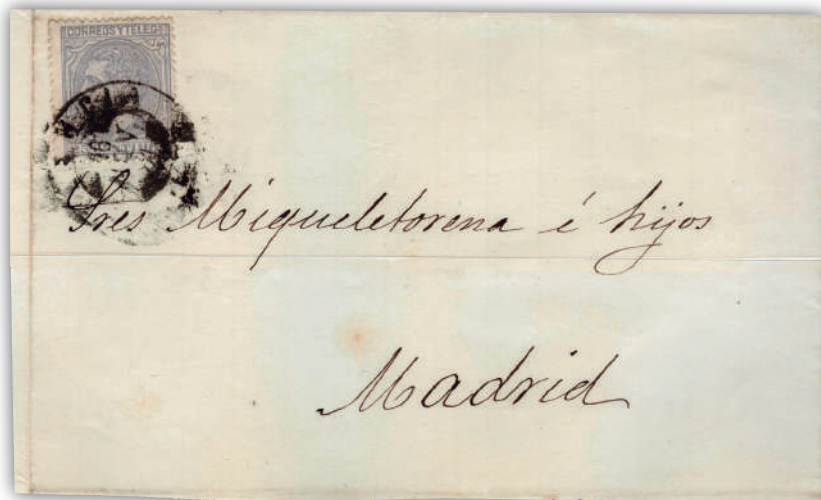 CORREOS Y TELEGS
Sres Miqueletorena é hijos
Madrid